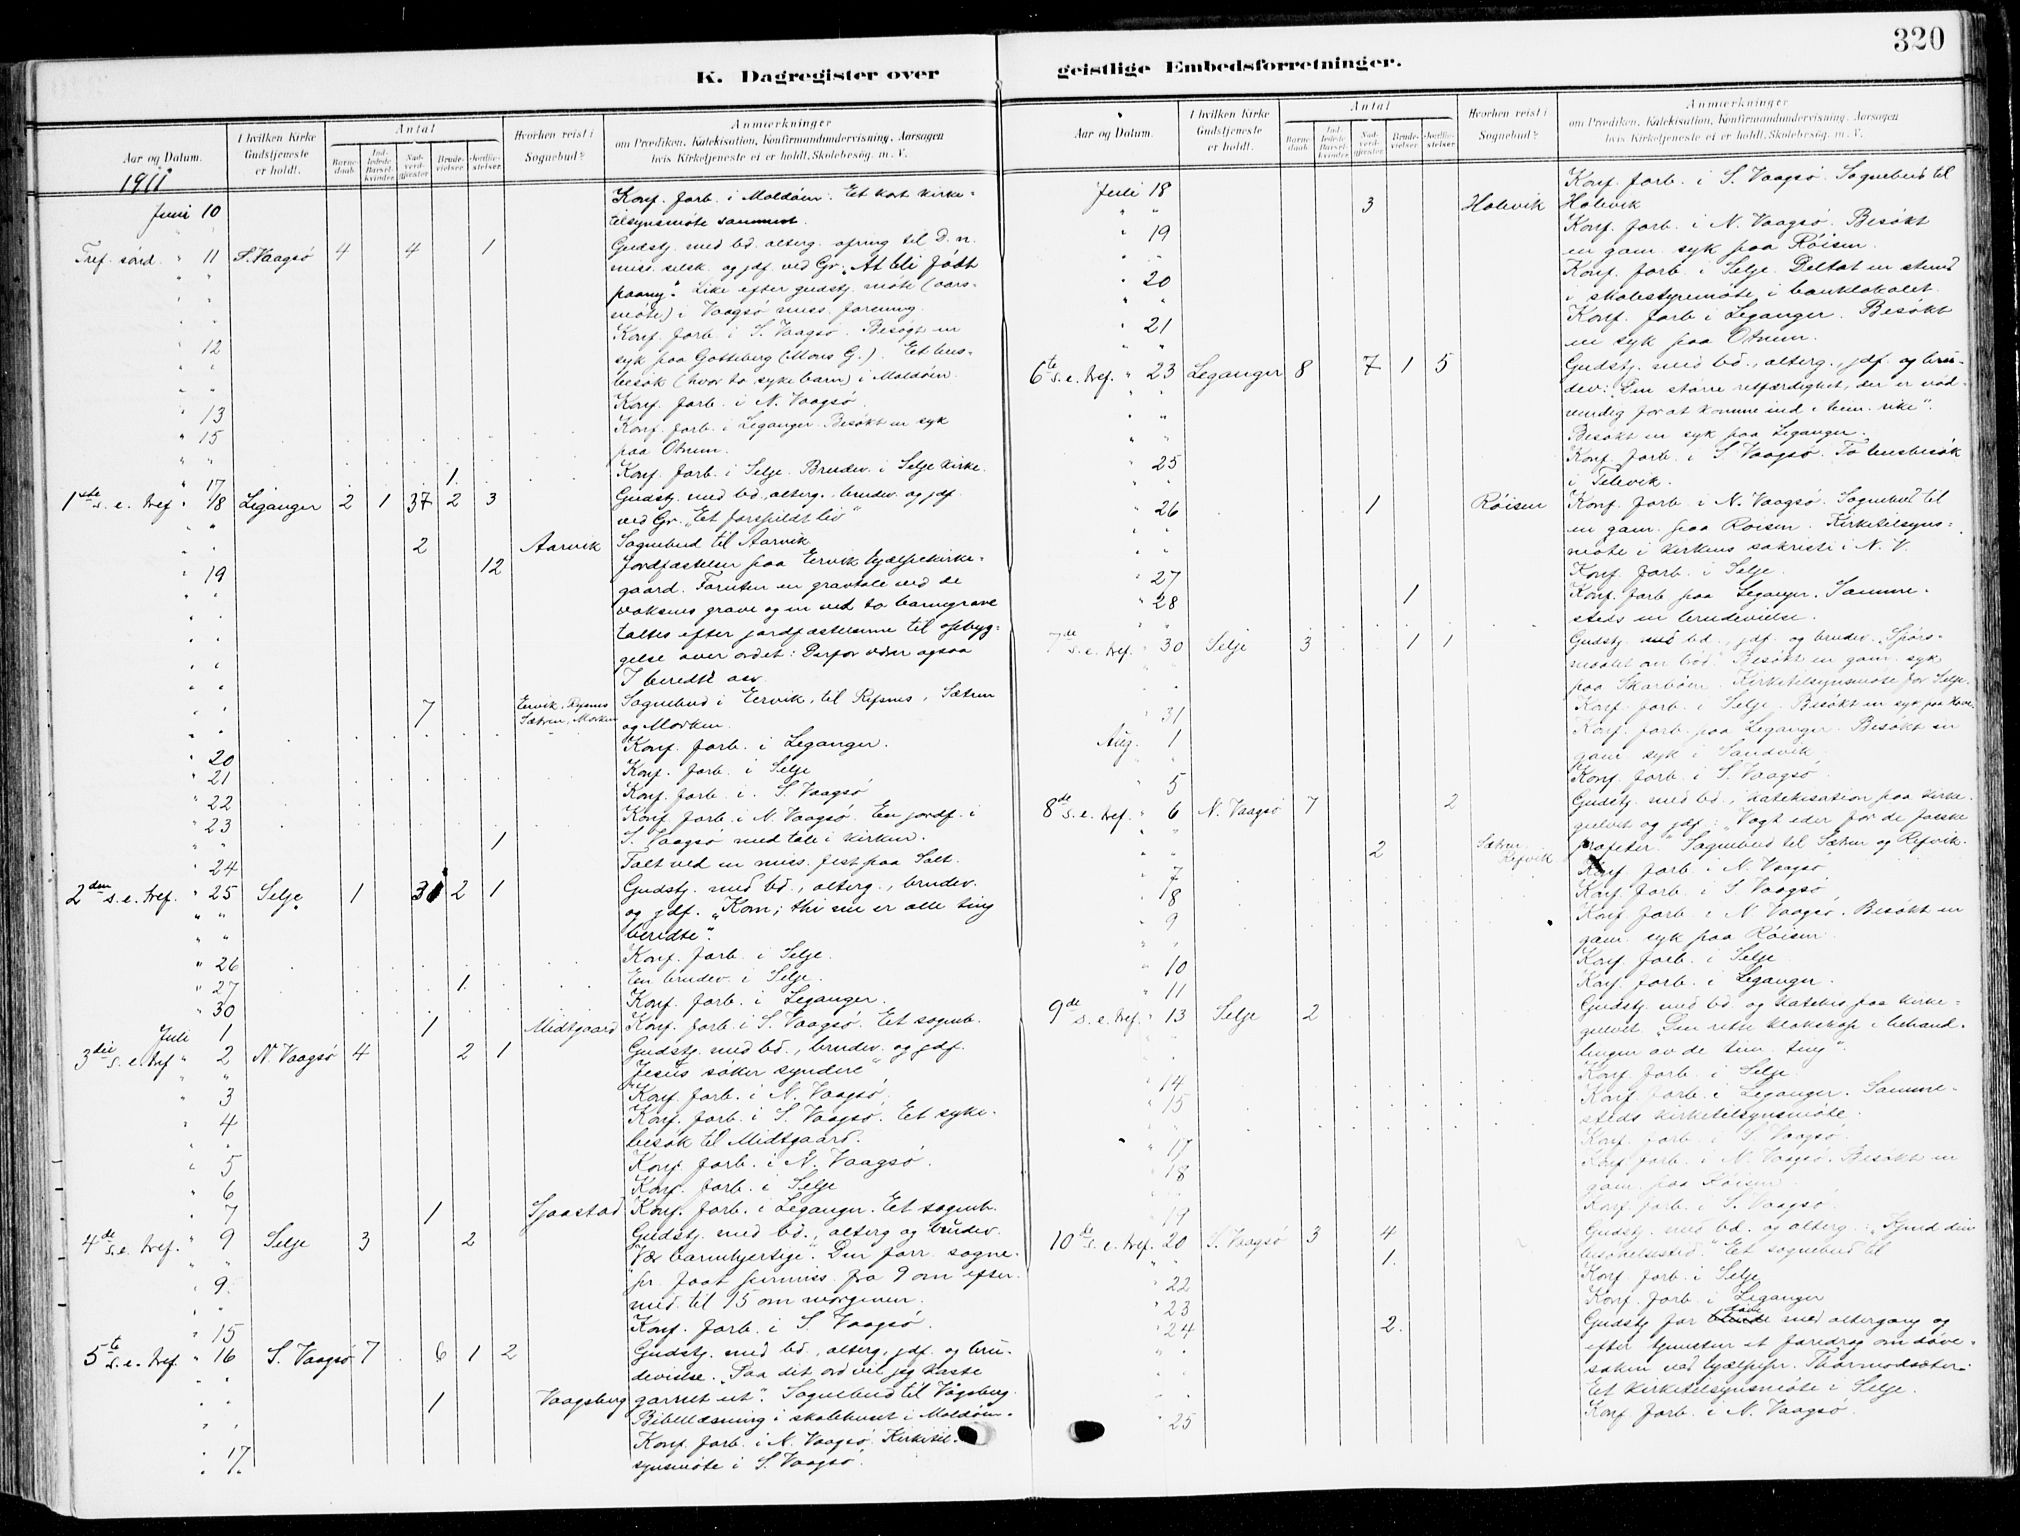 320
K. Dagregister over geistlige Embedsforretninger.
Aar og Datum. I hvilken Kirke Gudstjeneste er holdt. Antal Barnedaab Indledede Barselkvinder Nadverdgjester Brudevielser Jordfæstelser Hvorhen reist i Sognebud? Anmærkninger om Prædiken, Katekisation, Konfirmandundervisning, Aarsagen hvis Kirketjeneste ei er holdt, Skolebesøg m. V.
1911
Juni 10 Konf. forb. i Moldöen. Et kort kirke-
tilsynsmöte sammest.
Tref. sönd. " 11 S. Vaagsö 4 4 1 Gudstj. med bd. alterg. ofring til D. n.
miss. selsk. og jdf. ved Gr. "At bli født
paany". Like efter gudstj. möte (aars-
möte) i Vaagsö miss. forening.
" 12 Konf. forb. i S. Vaagsö. Besøgt en
syk paa Gotteberg (Mons G.). Et hus-
besök (hvor to syke barn) i Moldöen.
" 13 Konf. forb. i N. Vaagsö.
" 15 Konf. forb. i Leganger. Besökt en syk
paa Otnem.
" 17 1. Konf. forb. i Selje. Brudev. i Selje kirke.
1ste s. e. tref. " 18 Leganger 2 1 37 2 3 Gudstj. med bd., alterg., brudev. og jdf.
ved Gr. "Et forspildt liv"
2 Aarvik Sognebud til Aarvik
" 19 12 Jordfæstelser paa Ervik hjælpekirke-
gaard. Foruten en gravtale ved de
voksnes grave og en ved to barnegrave
taltes efter jordfæstelserne til opbyg-
gelse over ordet: Derfor vær ogsaa
I beredte osv.
7 Ervik, Refsnes Sætren, Morken Sognebud i Ervik, til Refsnes, Sætren
og Morken.
" 20 Konf. forb. i Leganger.
" 21 Konf. forb. i Selje
" 22 Konf. forb. i S. Vaagsö
" 23 1 Konf. forb. i N. Vaagsö. En jordf. i
S. Vaagsö med tale i kirken.
" 24 Talt ved en miss. fest paa Salt.
2den s. e. tref. " 25 Selje 1 31 2 1 Gudstj. med bd., alterg., brudev.
og jdf. "Kom; thi nu er alle ting
beredte".
" 26 Konf. forb. i Selje.
" 27 1. En brudev. i Selje.
" 30 Konf. forb. i Leganger.
Juli 1 1 Midtgaard Konf. forb. i S. Vaagsö. Et sogneb.
3die s. e. tref. " 2 N. Vaagsö 4 2 1 Gudstj. med bd., brudev. og jdf.
"Jesus söker syndere"
" 3 Konf. forb. i N. Vaagsö.
" 4 Konf. forb. i S. Vaagsö. Et syke-
besök til Midtgaard.
" 5 Konf. forb. i N. Vaagsö.
" 6 Konf. forb. i Selje
" 7 1 Sjaastad Konf. forb. i Leganger. Et sogneb.
4de s. e. tref. " 9 Selje 3 2 Gudstj. med bd., alterg og brudev.
"Vær barmhjertige". Den forr. sogne-
" 9. pr. faat permiss. fra 9 om efter-
med. til 15 om morgenen.
" 15 Konf. forb. i S. Vaagsö.
5te s. e. tref. " 16 S. Vaagsö 7 6 1 2 Gudstj. med bd., alterg., jdf. og bru-
devielse. "Paa dit ord vil jeg kaste
1 Vaagsberg garnet ut". Sognebud til Vågsberg.
Bibellæsning i skolehuset i Moldöen.
" 17. Konf. forb. i N. Vaagsö. Kirketil-
synsmöte i S. Vaagsö.
Juli 18 3 Holevik Konf. forb. i S. Vaagsö. Sognebud til
Holevik
" 19 Konf. forb. i N. Vaagsö. Besökt
en gam. syk paa Röisen.
" 20 Konf. forb. i Selje. Deltat en stund
i skolestyremöte i banklokalet.
" 21 Konf. forb. i Leganger. Besökt
en syk paa Otnem.
6te s. e. tref. " 23 Leganger 8 7 1 5 Gudstj. med bd., alterg., jdf. og bru-
dev: "Den större retfærdighet, der er nöd-
vendig for at komme ind i him. rike".
Besökt en syk paa Leganger.
" 25 Konf. forb. i S. Vaagsö. To husbesök
i Televik.
" 26 1 Röisen Konf. forb. i N. Vaagsö. Sognebud til
en gam. paa Röisen. Kirketilsyns-
möte i kirkens sakristi i N. V.
" 27 Konf. forb. i Selje.
" 28 1 Konf. forb paa Leganger. Samme-
steds en brudevielse.
7de s. e. tref. " 30 Selje 3 1 1 Gudstj. med bd., jdf. og brudev. "Spörs-
maalet om bröd". Besökt en gam. syk
paa Skarböen. Kirketilsynsmöte for Selje.
" 31 Konf. forb. i Selje. Besökt en syk paa
Aug. 1 Konf. forb. paa Leganger. Besökt en
gam. syk i Sandvik
" 5 Konf. forb. i S. Vaagsö.
8de s. e. tref. " 6 N. Vaagsö 7 2 Gudstj. med bd., katekisation paa kirke-
gulvet og jdf.: "Vogt eder for de falske
2 Sætren, Refvik profeter". Sognebud til Sætren og Refvik.
" 7 Konf. forb. i N. Vaagsö
" 8 Konf. forb. i S. Vaagsö
" 9 Konf. forb. i N. Vaagsö. Besökt en
gam. syk paa Röisen.
" 10 Konf. forb. i Selje
" 11 Konf. forb. i Leganger.
9de s. e. tref. " 13 Selje 2 Gudstj. med bd. og katekis. paa kirke-
gulvet. "Den rette klokskap i behand-
lingen av de tim. ting".
" 14 Konf. forb. i Selje.
" 15 Konf. forb. i Leganger. Samme-
steds kirketilsynsmöte.
" 17 Konf. forb. i S. Vaagsö.
" 18 Konf. forb. i N. Vaagsö. Besökt en
gam. paa Röisen
" 19 Konf. forb. i S. Vaagsö.
10de s. e. tref. 20 S. Vaagsö 3 4 Gudstj. med bd. og alterg.: "Kjend din
1. besökelsestid." Et sognebud til
" 22 Konf. forb. i Selje
" 23 Konf. forb. i Leganger
" 24 2. Gudstj. for döve med altergang og
efter tjenesten et foredrag om döve-
saken ved hjælpepr. Thormodsæter.
Et kirketilsynsmöte i Selje.
" 25 Konf. forb. i N. Vaagsö.